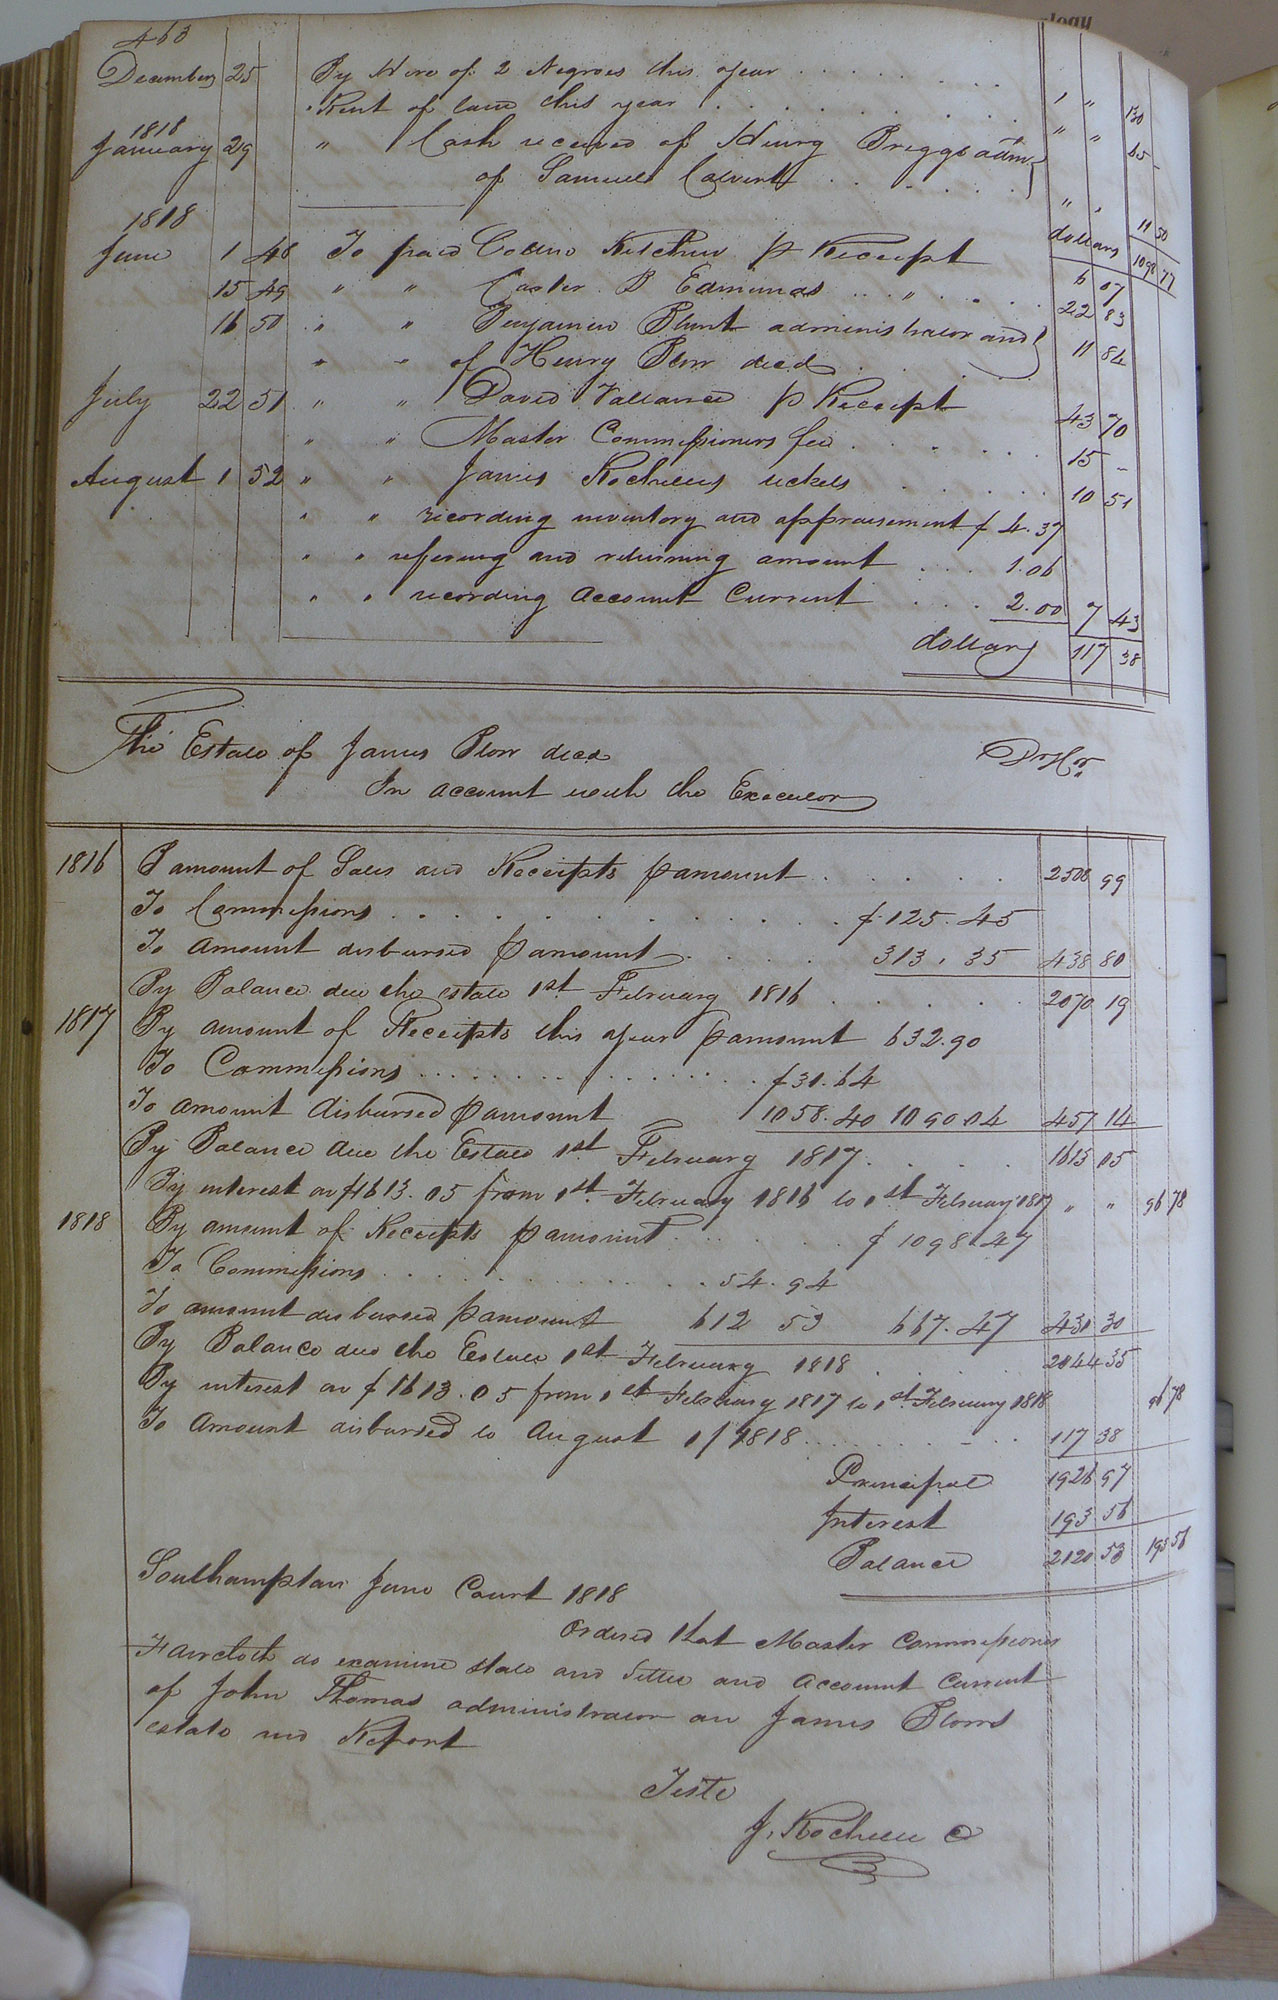 463
December 25 By Hire of 2 Negroes this year . . . . . . . " " 130
" Rent of land this year . . . . . . . " " 65 -
1818
January 29 " Cash received of Henry Briggs adm
of Samuel Calvert . . . . . . " " 11 50
dollars 1098 47
1818
June 1 48 To paid Kitchen p Receipt 6 07
15 49 " " Carter B Edmunds . . " . . . . 22 83
16 50 " " Benjamin Blunt administrator and
" " of Henry Blow decd . . . . 11 84
July 22 51 " " David Vallance p Receipt 43 70
" " Master Commissioners fee . . . . . . 15 -
August 1 52 " " James Rochelles tickets . . . . . . 10 51
" " recording inventory and appraisement $ 4.37
" " refering and returning amount . . . 1.06
" " recording account Current . . . 2.00 7 43
dollars 117 38
The Estate of James Blow decd
In account with the Executor
1816 B amount of Sales and Receipts p amount . . . . . 2508 99
To Commissions . . . . . . . . . . . $ 125.45
To amount disbursed p amount . . . . 313.35 438 80
By Balance due the estate 1st February 1816 . . . . . 2070 19
1817 By amount of Receipts this year p amount 632.90
To Commissions . . . . . . . . . . . . . $ 31.64
To amount disbursed p amount 1058.40 1090.04 457 14
By Balance due the Estate 1st February 1817 . . . . 1613 05
By interest on $1613.05 from 1st February 1816 to 1st February 1817 " " 96 78
1818 By amount of Receipts p amount . . . . . $ 1098.47
To Commissions . . . . . . . . . . . 54.94
To amount disbursed p amount 612 53 667.47 431 30
By Balance due the Estate 1st February 1818 . . . . 2044 35
By interest on $ 1613.05 from 1st February 1817 to 1st February 1818 96 78
To Amount disbursed to August 1/1818 . . . . . . . . 117 38
Principal 1926 97
Interest 193 56
Balance 2120 53 193 56
Southampton June Court 1818
Ordered that Master Commissioner
Faircloth do examine state and settle and account Current
of John Thomas administrator on James Blows
estate and Report
Teste
J. Rochelle C